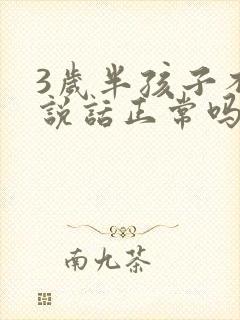 3歲半孩子不
說話正常嗎
南九茶